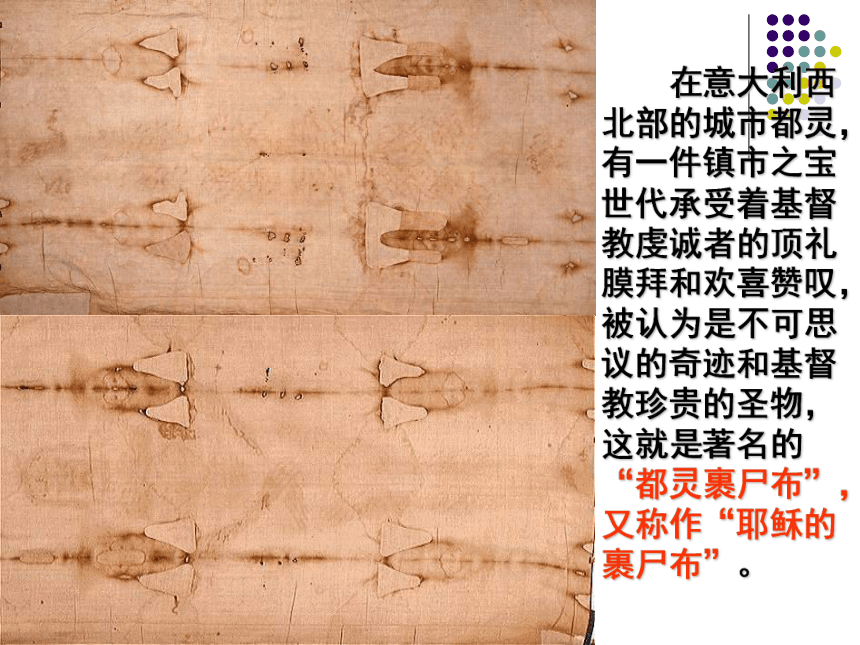 在意大利西
北部的城市都灵，
有一件镇市之宝
世代承受着基督
教虔诚者的顶礼
膜拜和欢喜赞叹，
被认为是不可思
议的奇迹和基督
教珍贵的圣物，
这就是著名的
“都灵裹尸布”，
又称作“耶稣的
裹尸布”。